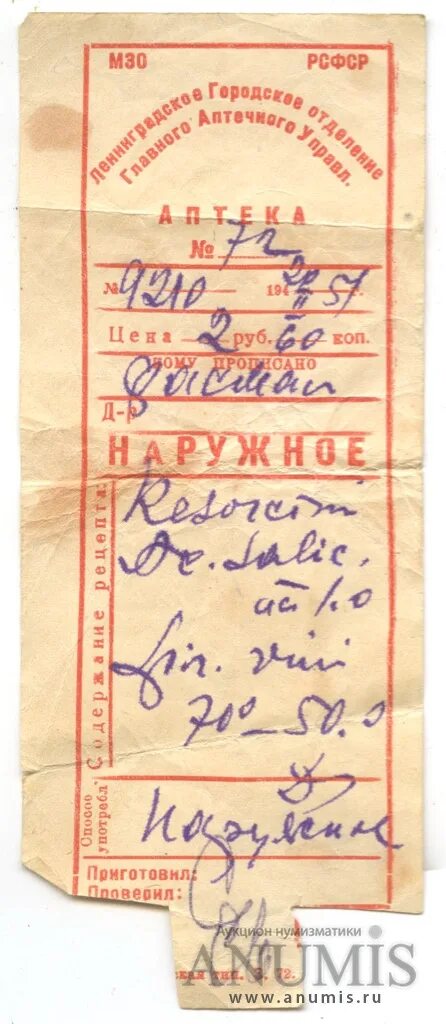 МЗО РСФСР
Ленинградское Городское отделение
Главного Аптечного Управл.
АПТЕКА
№ 72
№ 9210 194 20/II 51 г.
Цена 2 руб. 60 коп.
КОМУ ПРОПИСАНО
Д-р
НАРУЖНОЕ
Содержание рецепта:
Resorcini
Ac. Salic.
aa 1.0
Spir. vini
70° – 50.0
Способ употребл.
Наружное
Приготовил:
Проверил:
тип. З. 72.
Аукцион нумизматики
ANUMIS
www.anumis.ru